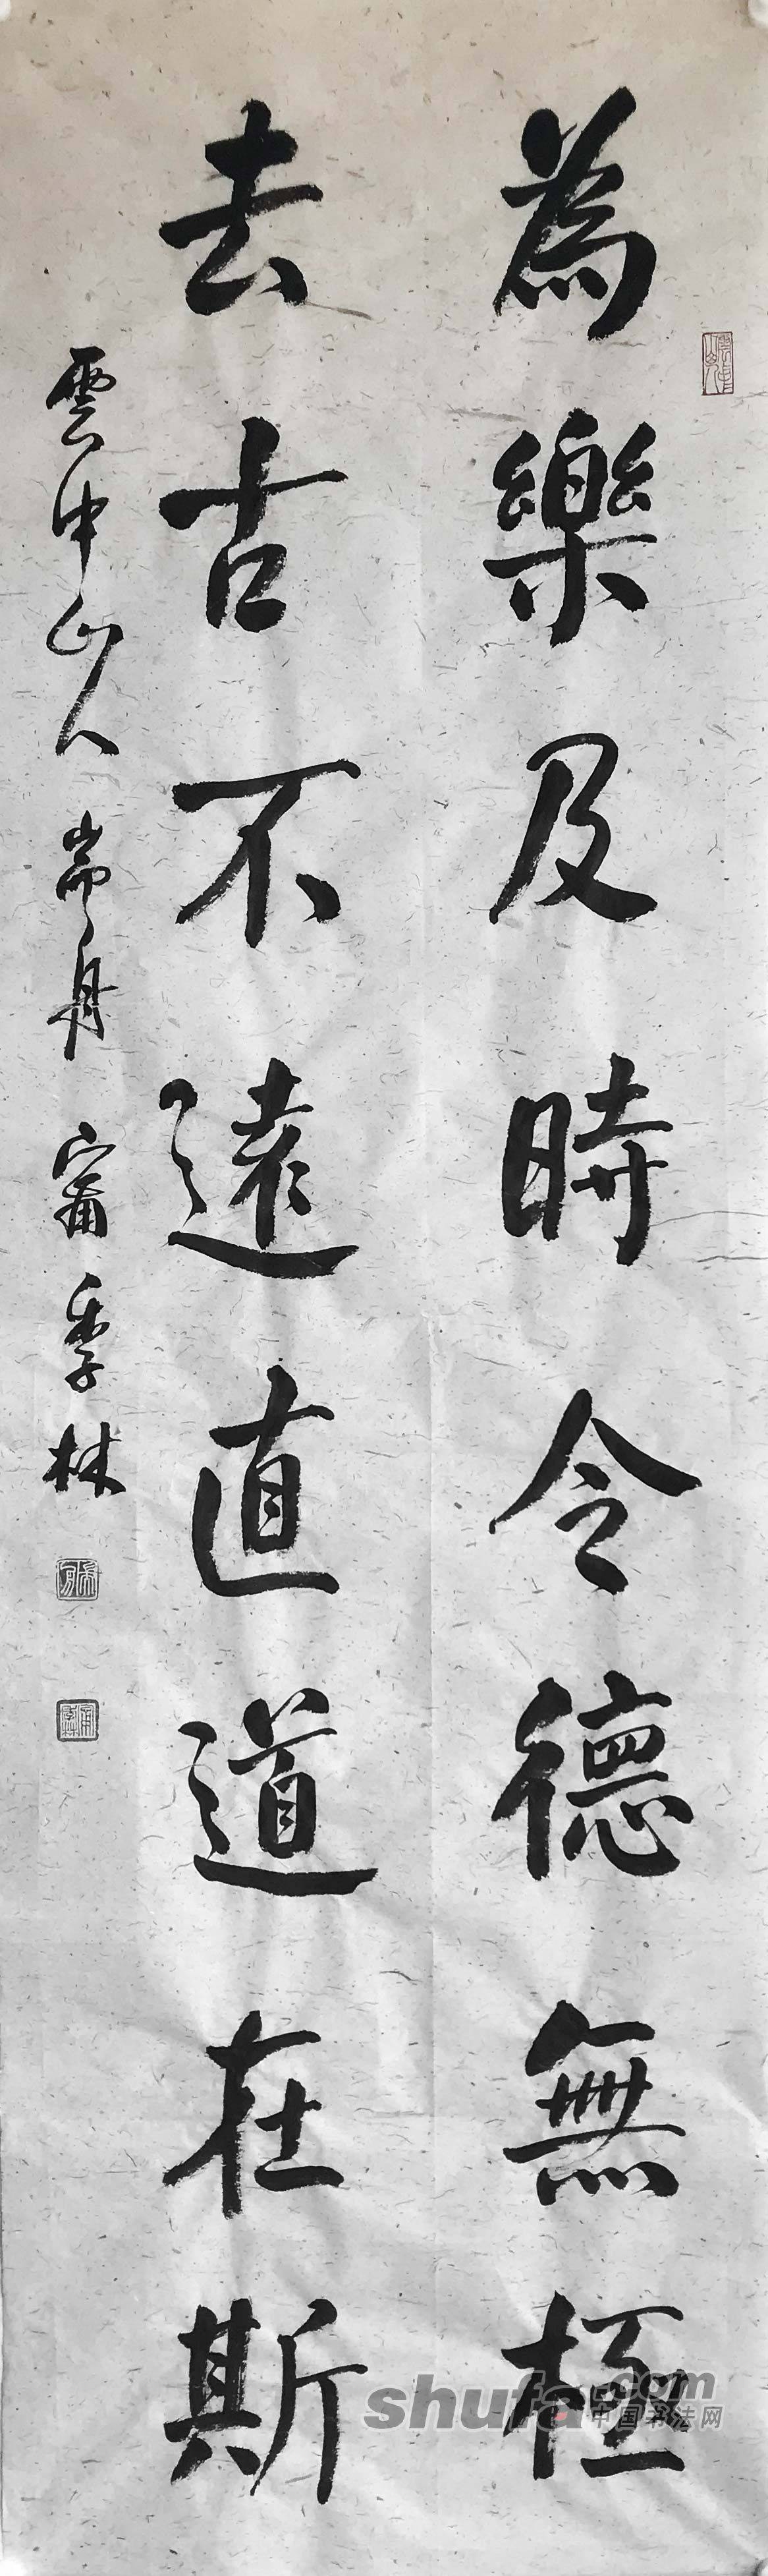 為樂及時令德無極
去古不遠直道在斯
雲中山人 常舟 甯季林
shufa.com
中国书法网